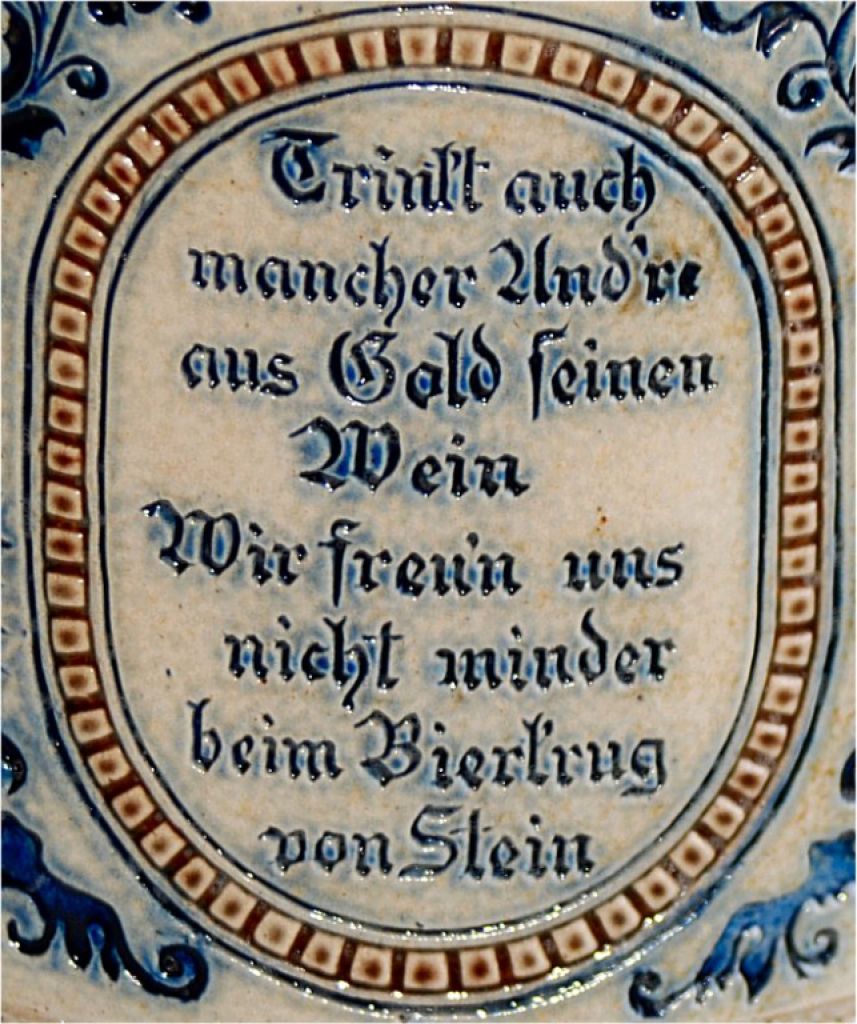 Trinkt auch
mancher And're
aus Gold seinen
Wein
Wir freu'n uns
nicht minder
beim Bierkrug
von Stein